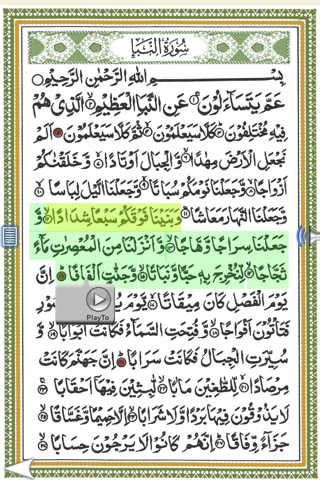 سُوْرَةُ النَّبَاِ
بِسْمِ اللهِ الرَّحْمٰنِ الرَّحِيْمِ
عَمَّ يَتَسَآءَلُوْنَ ۝۱ عَنِ النَّبَاِ الْعَظِيْمِ ۝۲ الَّذِيْ هُمْ
فِيْهِ مُخْتَلِفُوْنَ ۝۳ كَلَّا سَيَعْلَمُوْنَ ۝۴ ثُمَّ كَلَّا سَيَعْلَمُوْنَ ۝۵ اَلَمْ
نَجْعَلِ الْاَرْضَ مِهٰدًا ۝۶ وَّالْجِبَالَ اَوْتَادًا ۝۷ وَّخَلَقْنٰكُمْ
اَزْوَاجًا ۝۸ وَّجَعَلْنَا نَوْمَكُمْ سُبَاتًا ۝۹ وَّجَعَلْنَا الَّيْلَ لِبَاسًا ۝۱۰
وَّجَعَلْنَا النَّهَارَ مَعَاشًا ۝۱۱ وَّبَنَيْنَا فَوْقَكُمْ سَبْعًا شِدَادًا ۝۱۲ وَّ
جَعَلْنَا سِرَاجًا وَّهَّاجًا ۝۱۳ وَّاَنْزَلْنَا مِنَ الْمُعْصِرٰتِ مَآءً
ثَجَّاجًا ۝۱۴ لِّنُخْرِجَ بِهٖ حَبًّا وَّنَبَاتًا ۝۱۵ وَّجَنّٰتٍ اَلْفَافًا ۝۱۶ اِنَّ
يَوْمَ الْفَصْلِ كَانَ مِيْقَاتًا ۝۱۷ يَّوْمَ
PlayTo
فَتَاْتُوْنَ اَفْوَاجًا ۝۱۸ وَّفُتِحَتِ السَّمَآءُ فَكَانَتْ اَبْوَابًا ۝۱۹ وَّ
سُيِّرَتِ الْجِبَالُ فَكَانَتْ سَرَابًا ۝۲۰ اِنَّ جَهَنَّمَ كَانَتْ
مِرْصَادًا ۝۲۱ لِّلطّٰغِيْنَ مَاٰبًا ۝۲۲ لّٰبِثِيْنَ فِيْهَآ اَحْقَابًا ۝۲۳
لَا يَذُوْقُوْنَ فِيْهَا بَرْدًا وَّلَا شَرَابًا ۝۲۴ اِلَّا حَمِيْمًا وَّغَسَّاقًا ۝۲۵
جَزَآءً وِّفَاقًا ۝۲۶ اِنَّهُمْ كَانُوْا لَا يَرْجُوْنَ حِسَابًا ۝۲۷